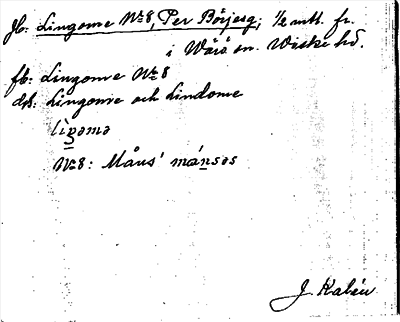 Jb: Lingome No 8, Per Börjesg; 1/2 antl. fr.
i Wärö sn. Wiske hd.
fb: Lingome No 8
ds: Lingome och Lindome
liŋəmə
No 8: Måns' mánsəs
J. Kalén